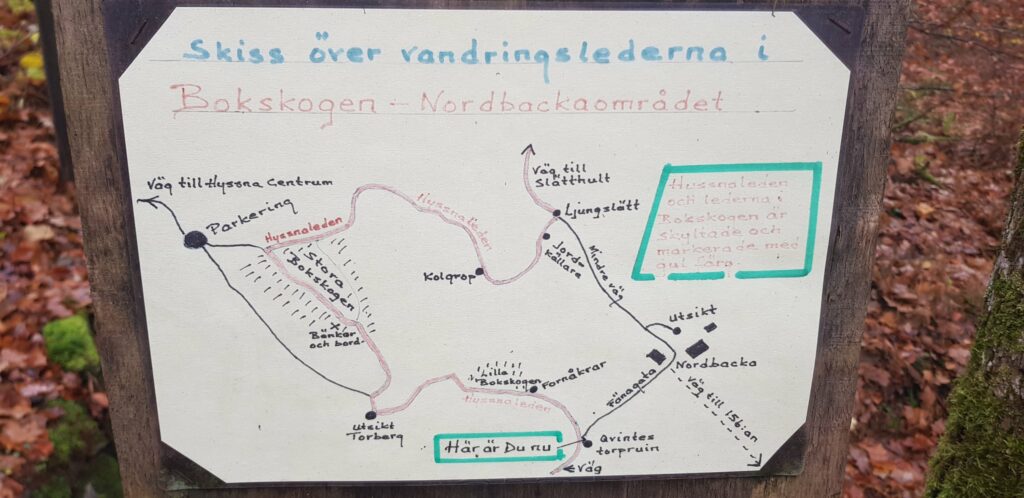 Skiss över vandringslederna i
Bokskogen - Nordbackaområdet
Väg till Hyssna Centrum
Parkering
Hyssnaleden
Stora
Bokskogen
Bänkar
och bord
Hyssnaleden
Kolgrop
Väg till
Slätthult
Ljungslätt
Jord-
källare
Mindre väg
Hyssnaleden
och lederna i
Bokskogen är
skyltade och
markerade med
gul färg.
Utsikt
Nordbacka
Väg till 156:an
Fänagata
Lilla
Bokskogen
Fornåkrar
Hyssnaleden
Utsikt
Torberg
Här är Du nu
Qvintes
torpruin
Väg